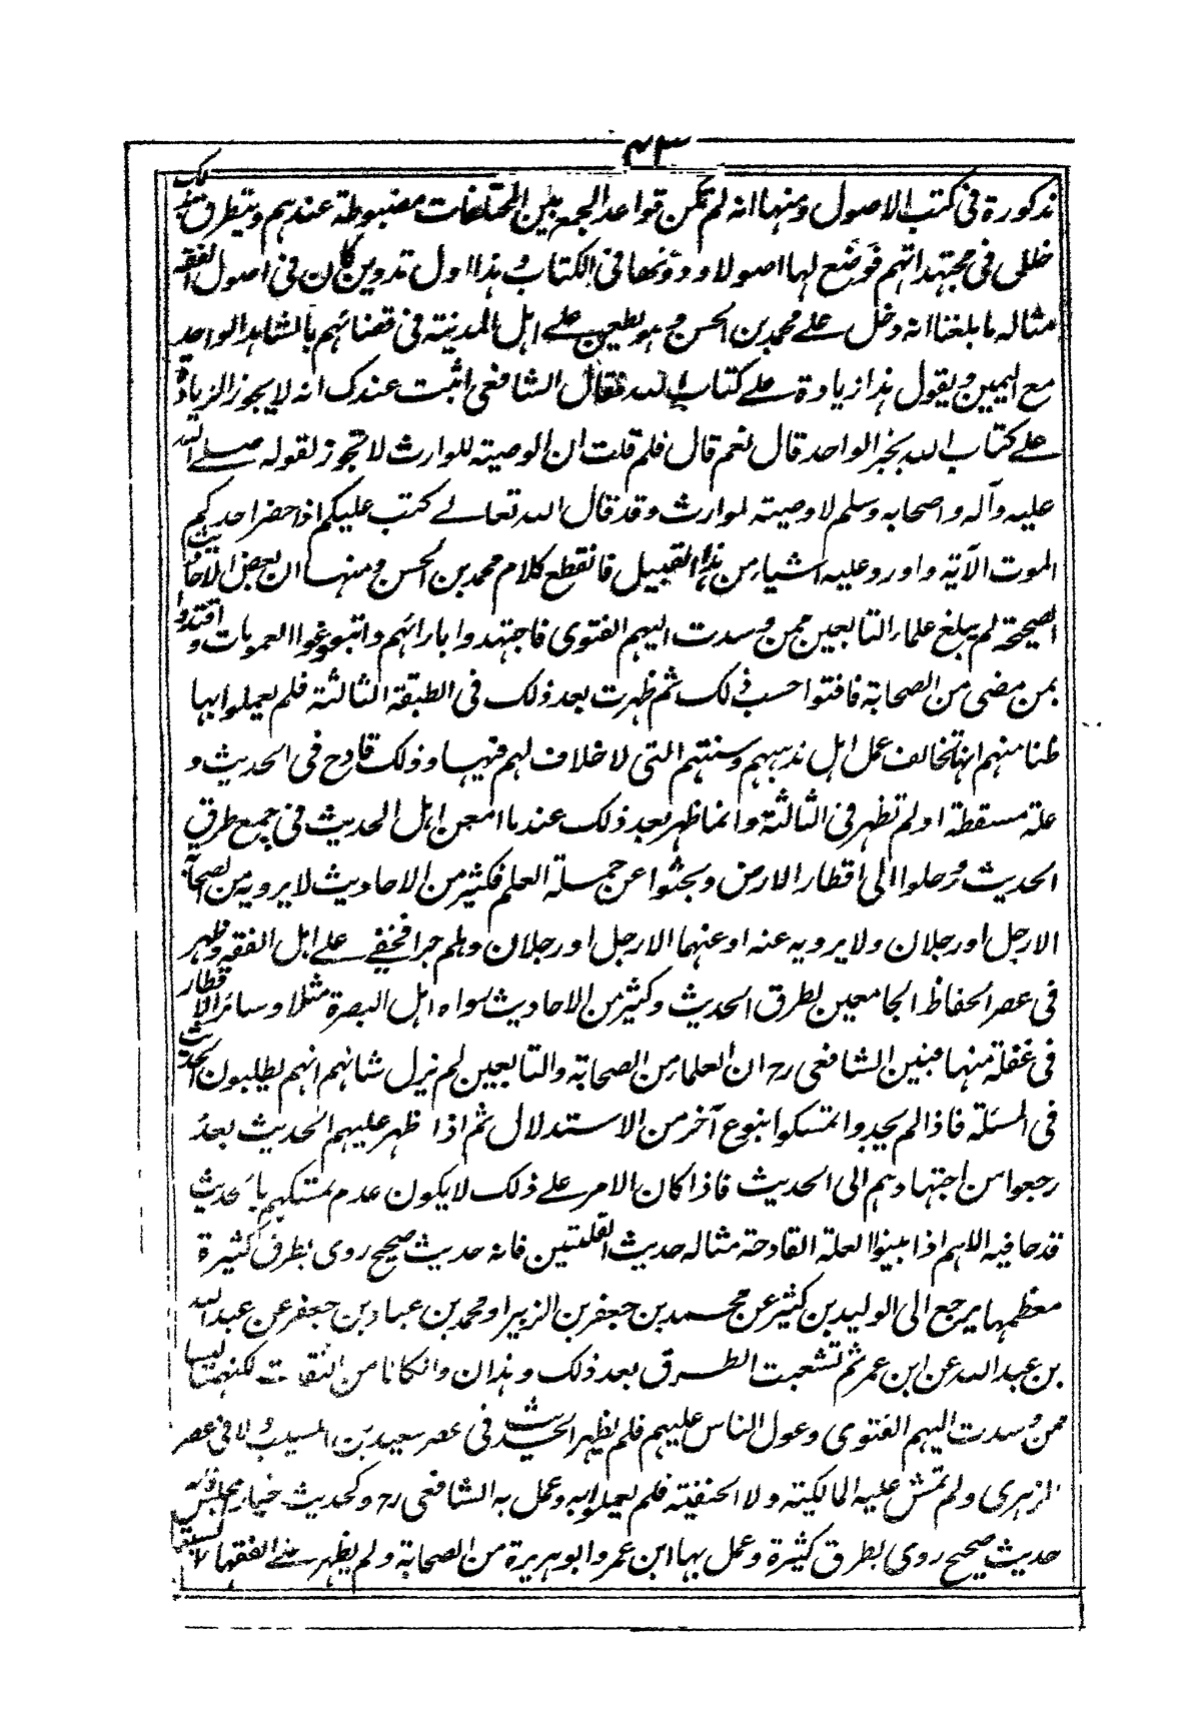 ٤٣
مذكورة فى كتب الاصول ومنها انه لم تكن قواعد الجمع بين المختلفات مضبوطة عندهم ويتطرق بذلك
خلل فى مجتهداتهم فوضع لها اصولا ودونها فى الكتاب وهذا اول تدوين كان فى اصول الفقه
مثاله ما بلغنا انه دخل على محمد بن الحسن وهو يطعن على اهل المدينة فى قضائهم بالشاهد الواحد
مع اليمين ويقول هذا زيادة على كتاب الله فقال الشافعى اثبت عندك انه لا يجوز الزيادة
على كتاب الله بخبر الواحد قال نعم قال فلم قلت ان الوصية للوارث لا تجوز لقوله صلى الله
عليه وآله واصحابه وسلم لا وصية لوارث وقد قال الله تعالى كتب عليكم اذا حضر احدكم
الموت الآية واورد عليه اشياء من هذا القبيل فانقطع كلام محمد بن الحسن ومنها ان بعض الاحاديث
الصحيحة لم يبلغ علماء التابعين ممن وسدت اليهم الفتوى فاجتهدوا بارائهم واتبعوا العمومات واقتدوا
بمن مضى من الصحابة فافتوا حسب ذلك ثم ظهرت بعد ذلك فى الطبقة الثالثة فلم يعملوا بها
ظنا منهم انها تخالف عمل اهل مذهبهم وسنتهم التى لا خلاف لهم فيها وذلك قادح فى الحديث و
علة مسقطة او لم تظهر فى الثالثة وانما ظهر بعد ذلك عندما امعن اهل الحديث فى جمع طرق
الحديث ورحلوا الى اقطار الارض وبحثوا عن حملة العلم فكثير من الاحاديث لا يرويه من الصحابة
الا رجل او رجلان ولا يرويه عنه او عنهما الا رجل او رجلان وهلم جرا فخفى على اهل الفقه وظهر
فى عصر الحفاظ الجامعين لطرق الحديث وكثير من الاحاديث رواه اهل البصرة مثلا وسائر الاقطار
فى غفلة منها فبين الشافعى رح ان العلماء من الصحابة والتابعين لم يزل شانهم انهم يطلبون الحديث
فى المسئلة فاذا لم يجدوا تمسكوا بنوع آخر من الاستدلال ثم اذا ظهر عليهم الحديث بعد
رجعوا من اجتهادهم الى الحديث فاذا كان الامر على ذلك لا يكون عدم تمسكهم بالحديث
قدحا فيه اللهم اذا بينوا العلة القادحة مثاله حديث القلتين فانه حديث صحيح روى بطرق كثيرة
معظمها يرجع الى الوليد بن كثير عن محمد بن جعفر بن الزبير او محمد بن عباد بن جعفر عن عبد الله
بن عبد الله عن ابن عمر ثم تشعبت الطرق بعد ذلك وهذان وان كانا من الثقات لكنهما ليسا
ممن وسدت اليهم الفتوى وعول الناس عليهم فلم يظهر الحديث فى عصر سعيد بن المسيب ولا فى عصر
الزهرى ولم تمش عليه المالكية ولا الحنفية فلم يعملوا به وعمل به الشافعى رح وكحديث خيار المجلس فانه
حديث صحيح روى بطرق كثيرة وعمل بها ابن عمر وابو هريرة من الصحابة ولم يظهر على الفقهاء السبعة